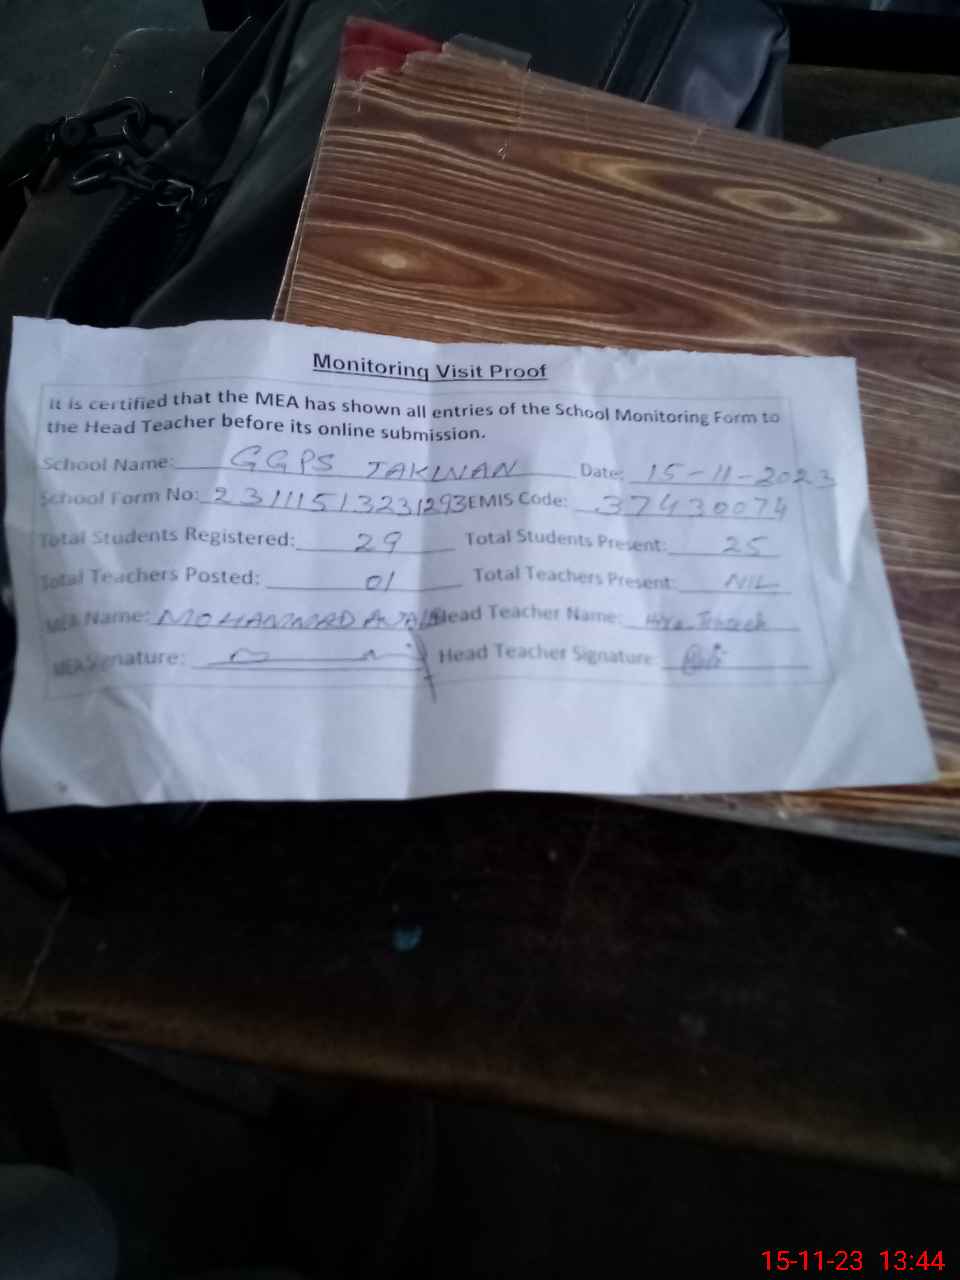 Monitoring Visit Proof
It is certified that the MEA has shown all entries of the School Monitoring Form to
the Head Teacher before its online submission.
School Name: GGPS TAKWAN Date: 15-11-2023
School Form No: 23111513231293 EMIS Code: 37430074
Total Students Registered: 29 Total Students Present: 25
Total Teachers Posted: 01 Total Teachers Present: NIL
MEA Name: MOHAMMAD Head Teacher Name:
MEA Signature: Head Teacher Signature:
15-11-23 13:44